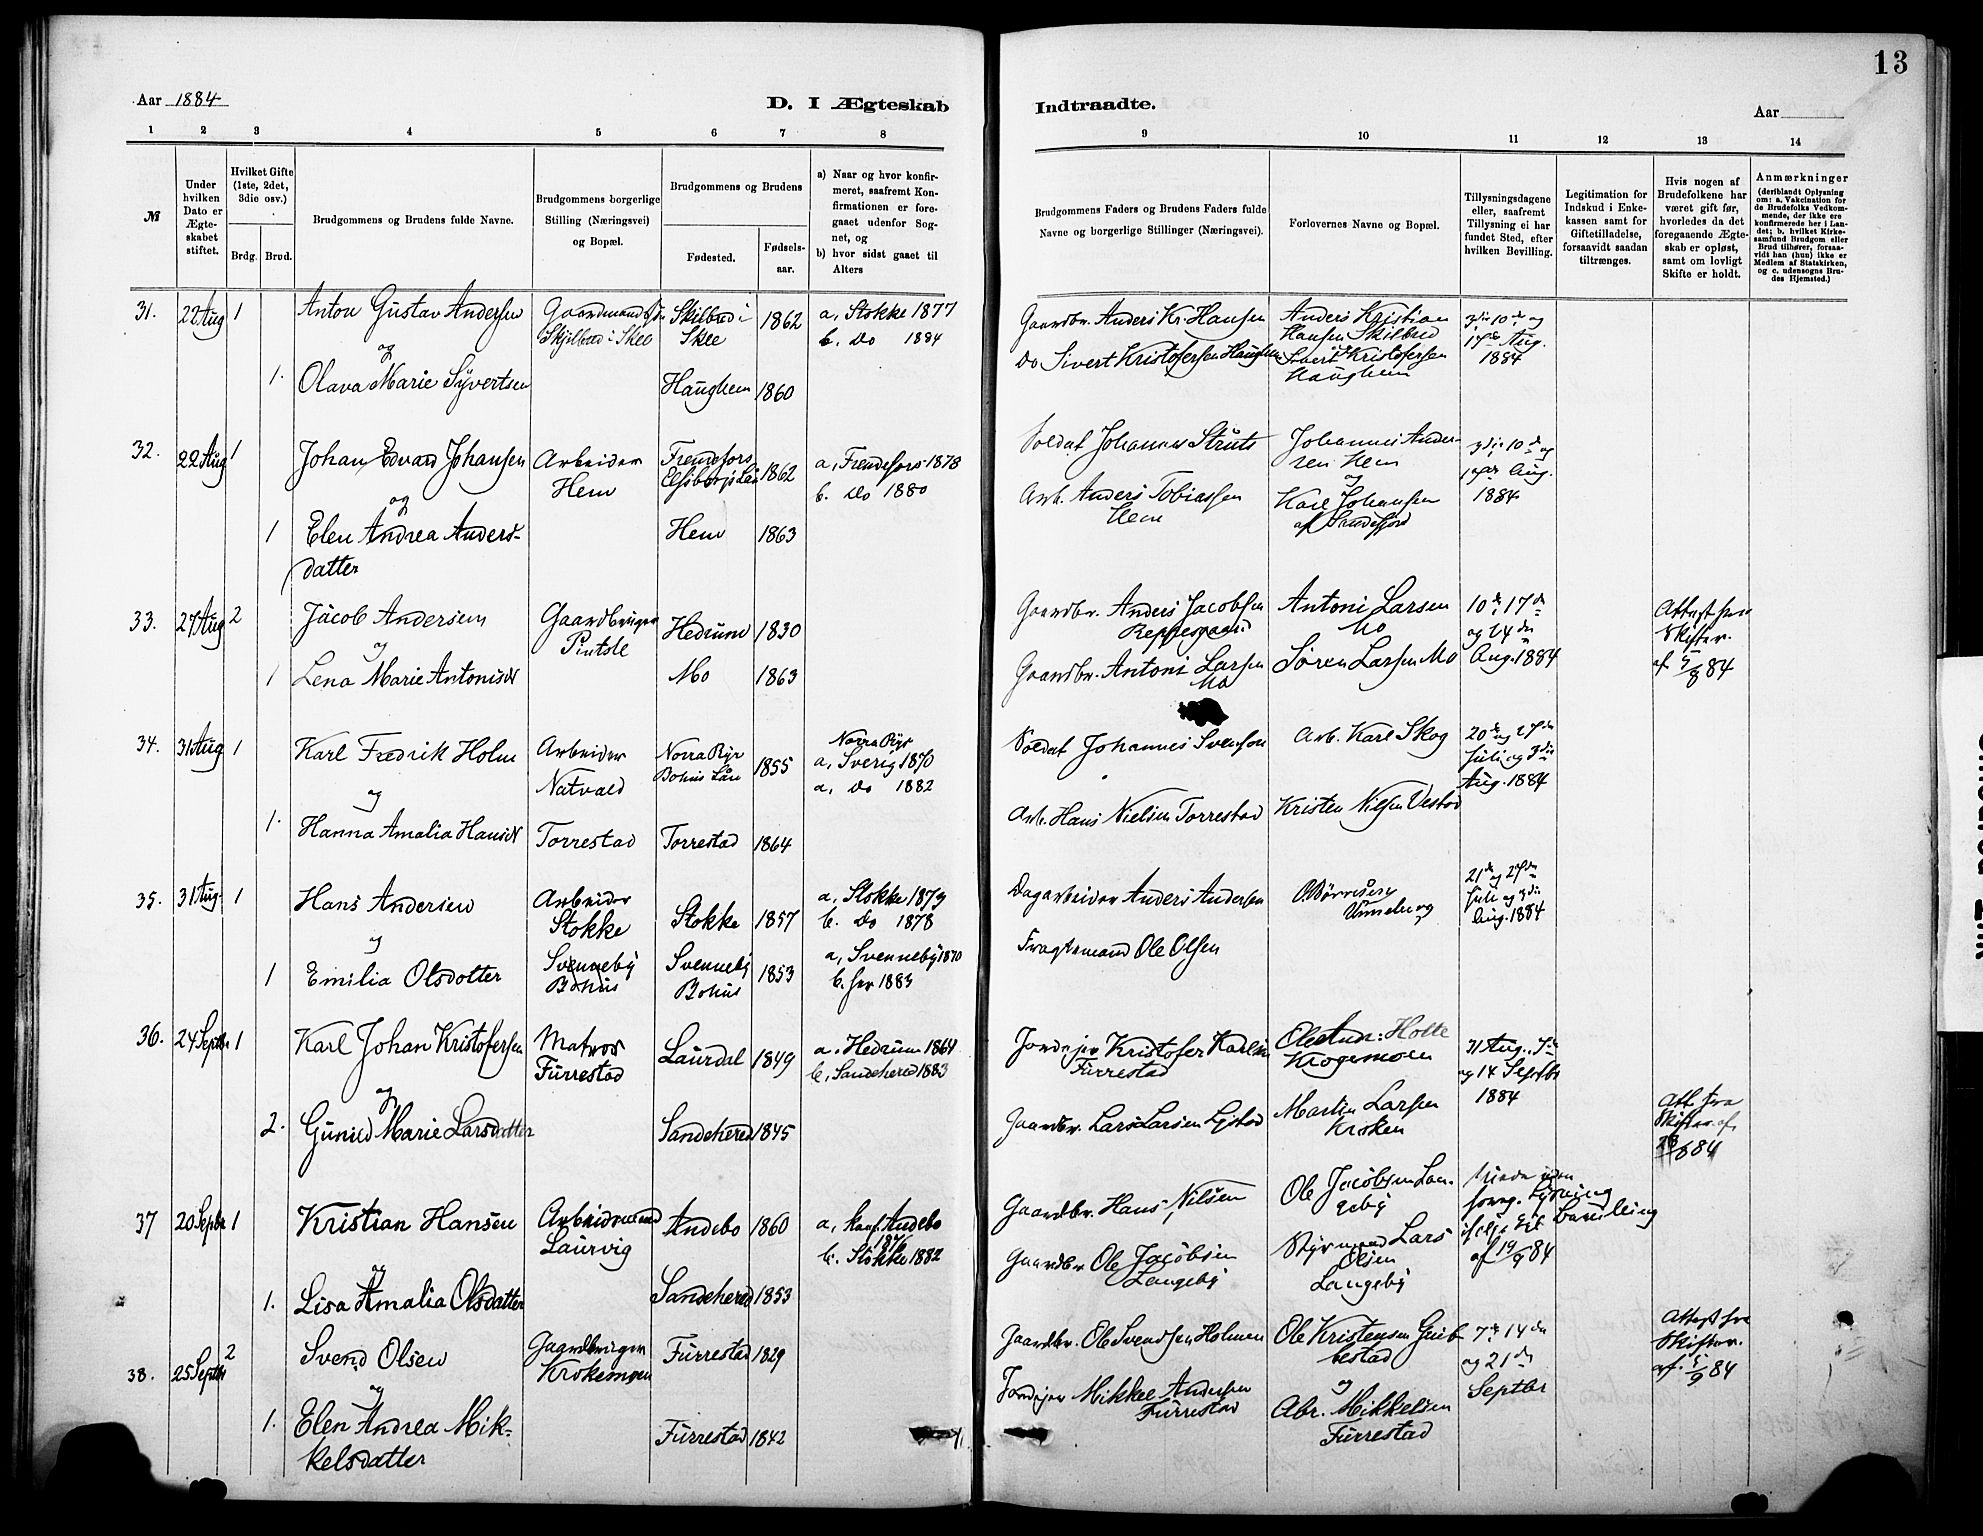 13
Aar 1884
D. I Ægteskab
Indtraadte.
Aar
1 2 3 4 5 6 7 8
9 10 11 12 13 14
№
Under hvilken Dato er Ægteskabet stiftet.
Hvilket Gifte (1ste, 2det, 3die osv.)
Brdg. Brud.
Brudgommens og Brudens fulde Navne.
Brudgommens borgerlige Stilling (Næringsvei) og Bopæl.
Brudgommens og Brudens
Fødested.
Fødselsaar.
a) Naar og hvor konfirmeret, saafremt Konfirmationen er foregaaet udenfor Sognet, og
b) hvor sidst gaaet til Alters
Brudgommens Faders og Brudens Faders fulde Navne og borgerlige Stillinger (Næringsvei).
Forlovernes Navne og Bopæl.
Tillysningsdagene eller, saafremt Tillysning ei har fundet Sted, efter hvilken Bevilling.
Legitimation for Indskud i Enkekassen samt for Giftetilladelse, forsaavidt saadan tiltrænges.
Hvis nogen af Brudefolkene har været gift før, hvorledes da det foregaaende Ægteskab er opløst, samt om lovligt Skifte er holdt.
Anmærkninger (deriblandt Oplysning om: a. Vakcination for de Brudefolks Vedkommende, der ikke ere konfirmerede her i Landet; b. hvilket Kirkesamfund Brudgom eller Brud tilhører, forsaavidt han (hun) ikke er Medlem af Statskirken, og c. udensogns Brudes Hjemsted.)
31. 22 Aug 1 Anton Gustav Andersen Skilbred i Skee 1862 a, Stokke 1877
Skjilbred i Skee b. Do 1884
og
1. Olava Marie Syvertsen Haughem 1860
Gaardbr. Anders Kr. Hansen Anders Kristian Hansen Skilbred
Do Sivert Kristofersen Haughem Sivert Kristofersen Haughem
Aug. 1884
32. 22 Aug 1 Johan Edvard Johansen Arbeider Hem 1862 a, Frendefors 1878
b. Do 1880
og
1 Elen Andrea Andersdatter Hem 1863
Soldat Johannes Struts Johannes Andersen Hem
og
Arb. Anders Tobiassen Hem Karl Johansen af Sandefjord
Aug. 1884
33. 27 Aug 2 Jacob Andersen Gaardbruger Hedrum 1830
og
1 Lena Marie Antonisdr Mo 1863
Gaardbr. Anders Jacobsen Antoni Larsen Mo
Gaardbr. Antoni Larsen Mo Søren Larsen Mo
10de 17de og 24de Aug. 1884
Attest fra Skifter. af 5/8 84
34. 31 Aug 1 Karl Fredrik Holm Arbeider Natvald Norra Ryr Bohus Län 1855 Norra Ryr
a, Sverig 1870
a, Do 1882
og
1. Hanna Amalia Hansdr Torrestad Torrestad 1864
Soldat Johannes Svensson Arb. Karl Skog
Arb. Hans Nielsen Torrestad Kristen Nilsen
20de og 27de Juli og 3die Aug. 1884
35. 31 Aug. 1 Hans Andersen Arbeider Stokke Stokke 1857 a, Stokke 1873
b. Do 1878
og
1 Emilia Olsdotter Svenneby Bohus Svenneby Bohus 1853 a, Svenneby 1870
b. her 1883
Dagarbeider Anders Andersen
Fragtemand Ole Olsen
Juli og 3die Aug. 1884
36. 24 Septbr 1 Karl Johan Kristofersen Matros Furrestad Laurdal 1849 a. Hedrum 1864
b, Sandehered 1883
og
2. Gunild Marie Larsdatter Sandehered 1845
Jordejer Kristofer Karlsen Furrestad
Gaardbr. Lars Larsen Martin Larsen Kroken
31 Aug., 7de og 14 Septbr 1884
Att. fra Skifter. af
37 20 Septbr 1 Kristian Hansen Arbeidsmand Laurvig Andebo 1860 a, konf. Andebo 1876
b. Stokke 1882
og
1. Lisa Amalia Olsdatter Sandehered 1853
Gaardbr. Hans Nilsen Ole Jacobsen Langeby
Gaardbr Ole Jacobsen Langeby Styrmand Lars Olsen Langeby
af 19/9 84
38. 25 Septbr 2 Svend Olsen Gaardbruger Krokemoen Furrestad 1829
og
1. Elen Andrea Mikkelsdatter Furrestad 1842
Gaardbr. Ole Svendsen Holmen Ole Kristensen
og
Jordejer Mikkel Andersen Furrestad Abr. Mikkelsen Furrestad
7de 14de og 21de Septbr
Attest fra Skifter. af. 5/9 84